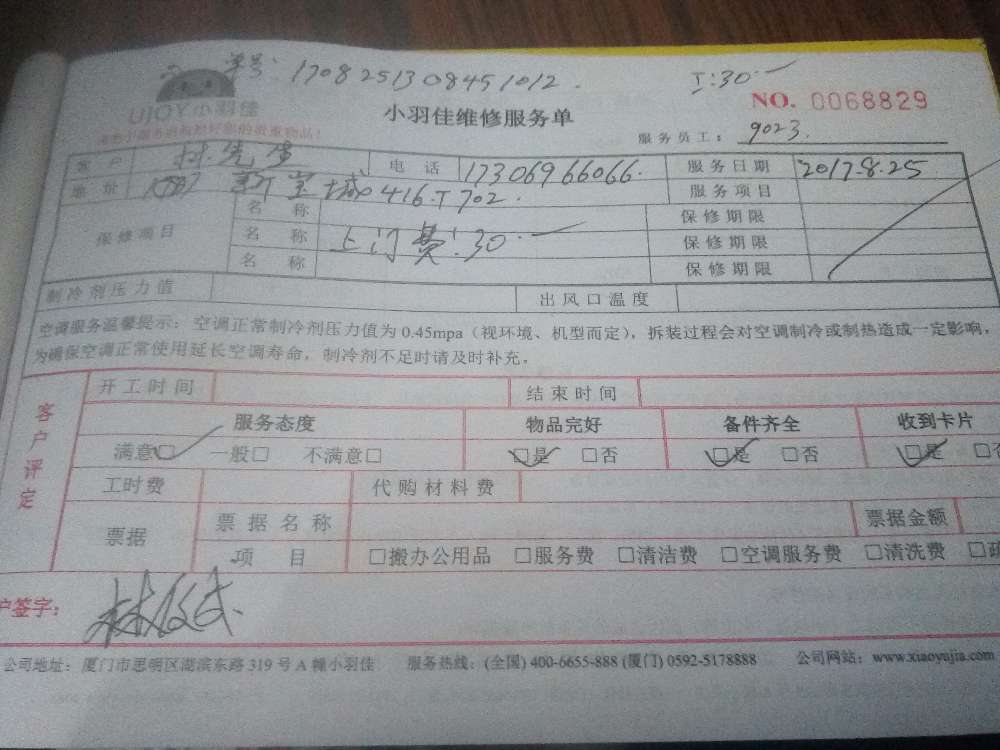 单号: 170825130845 1012.
I:30.一
UJOY小羽佳
NO. 0068829
小羽佳维修服务单
服务员工: 9023.
客户 林先生 电话 17306966066. 服务日期 2017.8.25
地址 城0416.T702. 服务项目
保修项目 名称 保修期限
名称 上门费:30.一 保修期限
名称 保修期限
制冷剂压力值 出风口温度
空调服务温馨提示:空调正常制冷剂压力值为 0.45mpa(视环境、机型而定),拆装过程会对空调制冷或制热造成一定影响,
为确保空调正常使用延长空调寿命,制冷剂不足时请及时补充。
客户评定
开工时间 结束时间
服务态度 物品完好 备件齐全 收到卡片
满意☑ 一般□ 不满意□ ☑是 □否 ☑是 □否 ☑是 □否
工时费 代购材料费
票据 票据名称 票据金额
项目 □搬办公用品 □服务费 □清洁费 □空调服务费 □清洗费
户签字:
公司地址:厦门市思明区湖滨东路 319 号 A 幢小羽佳 服务热线:(全国) 400-6655-888 (厦门) 0592-5178888 公司网站:www.xiaoyujia.com